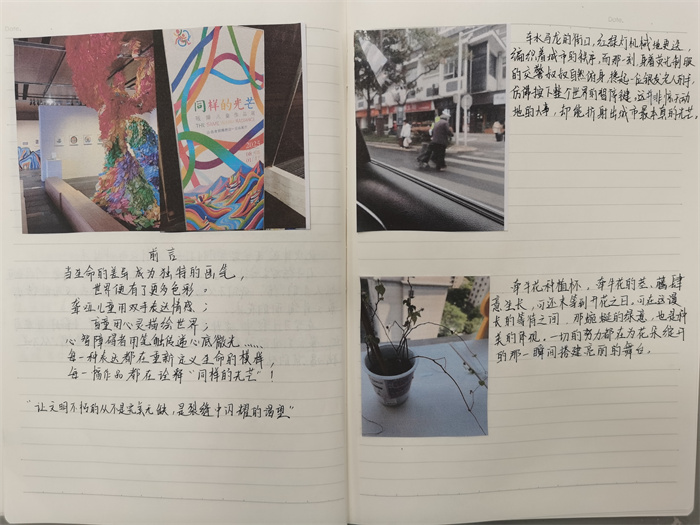 同样的光芒
THE SAME RADIANCE
2024
前言
当生命的差异成为独特的画笔，
世界便有了更多色彩。
聋哑儿童用双手表达情感；
盲童用心灵描绘世界；
心智障碍者用笔触传递心底微光……
每一种表达都在重新定义生命的模样，
每一幅作品都在诠释“同样的光芒”！
“让文明不朽的从不是完美无缺，是裂缝中闪耀的渴望”
Date.
车水马龙的街口，红绿灯机械地更迭，
编织着城市的秩序，而那一刻，身着荧光制服
的交警叔叔自然俯身，搀起一位银发老人的手，
仿佛按下整个世界的暂停键，这并非惊天动
地的大事，却能折射出城市最本真的光芒。
牵牛花种植杯，牵牛花的茎、藤肆
意生长，可还未等到开花之日。可在这漫
长的等待之间，那蜿蜒的绿意，也是种
美的存在。一切的努力都在为花朵绽开
的那一瞬间搭建亮丽的舞台。